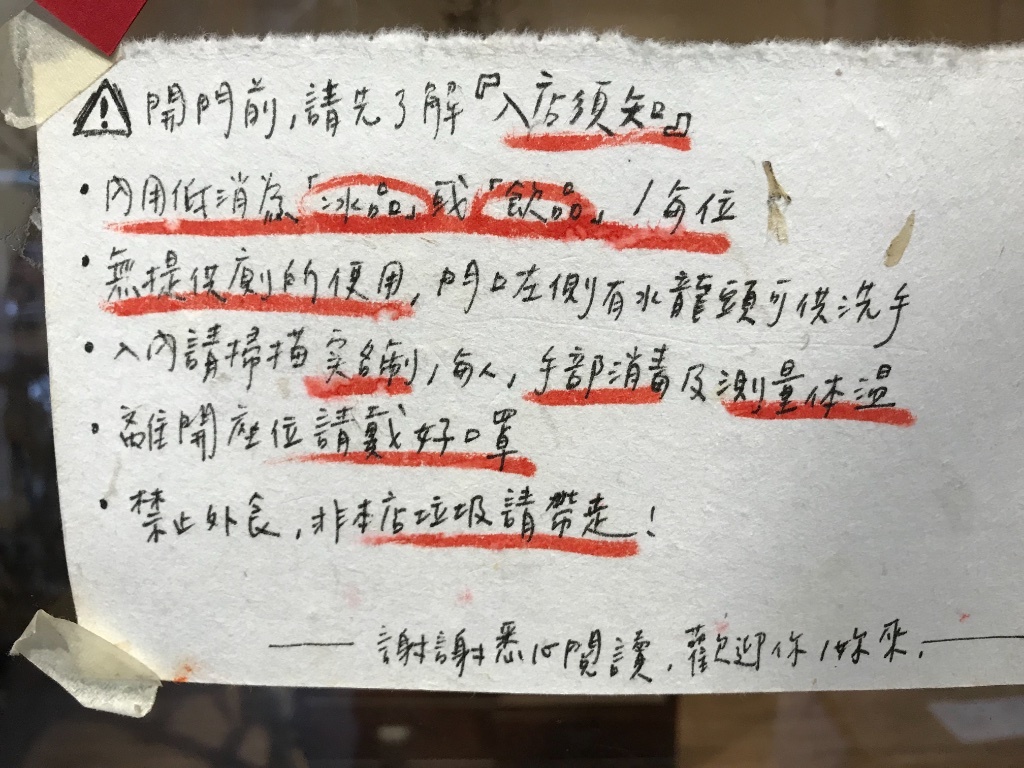 ⚠ 開門前,請先了解『入店須知』
• 內用低消為「冰品」或「飲品」/每位
• 無提供廁所使用,門口左側有水龍頭可供洗手
• 入內請掃描实名制/每人,手部消毒及測量体温
• 離開座位請戴好口罩
• 禁止外食,非本店垃圾請帶走!
—— 謝謝悉心閱讀,歡迎你/妳來. ——